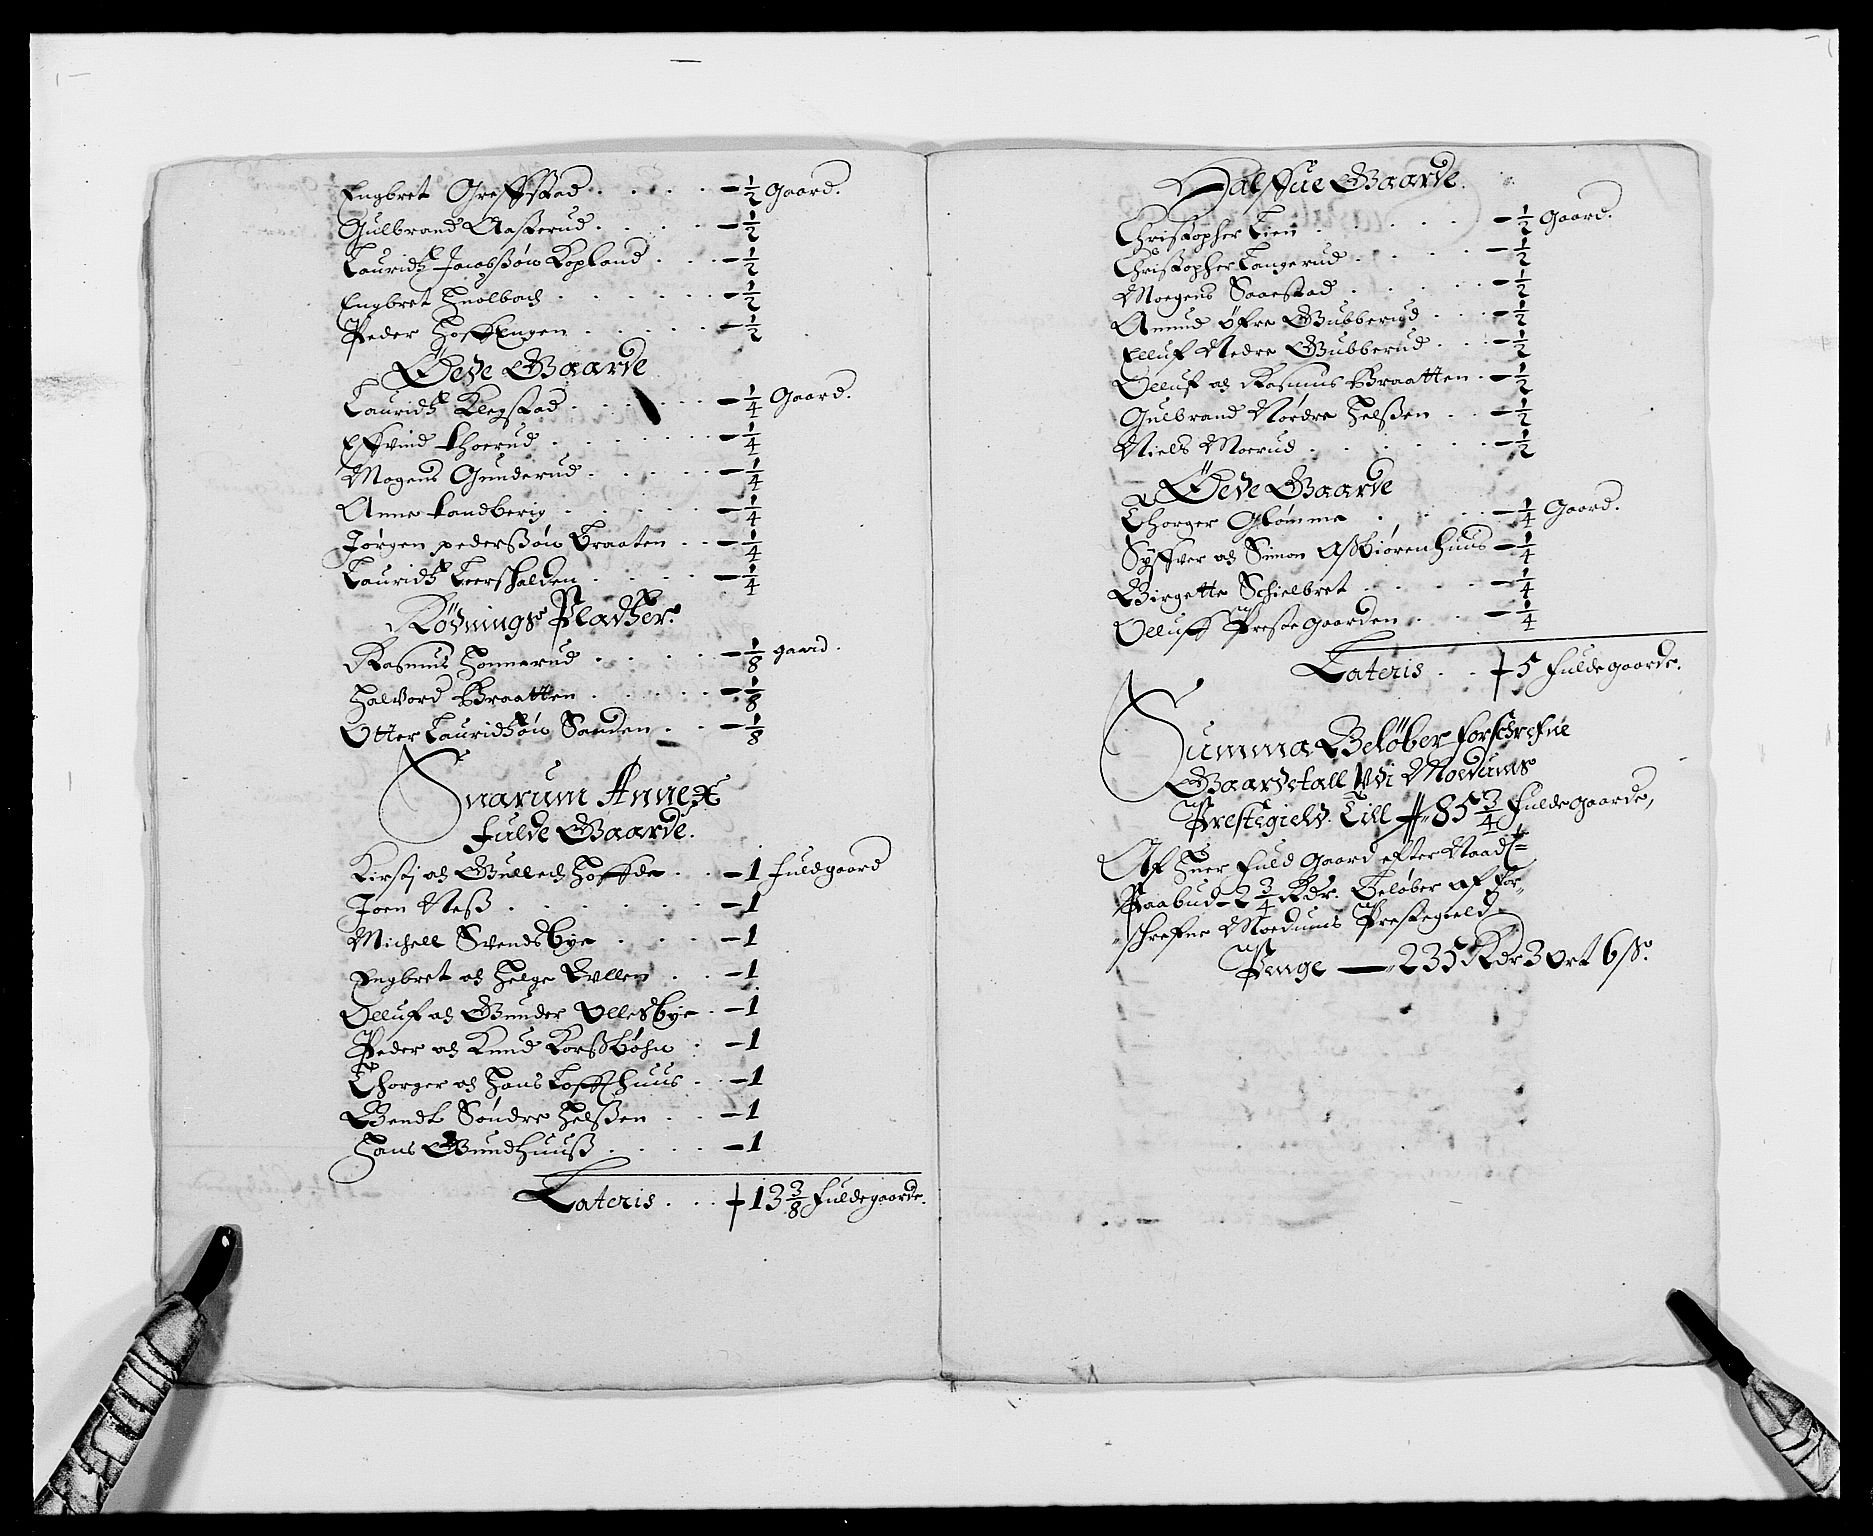 Engbret Greffstad . . . . - 1/2 gaard.
Gulbrand Aasterud . . . . - 1/2
Lauridtz Jacobsøn Kopland . . - 1/2
Engbret Huolbach . . . . . - 1/2
Peder Hoffengen . . . . . - 1/2
Øede Gaarde
Lauridtz Klegstad . . . . . - 1/4 gaard.
Effvind Thorrud . . . . . - 1/4
Mogens Gunderud . . . . - 1/4
Anne Landberig . . . . . - 1/4
Jørgen pedersøn Braaten . . - 1/4
Lauridtz Leershalden . . . . - 1/4
Rødnings Pladtzer.
Rasmus Honnerud . . . . - 1/8 gaard.
Halvord Braatten . . . . . - 1/8
Otter Lauridsøn Sanden . . - 1/8
Snarum Annex
fulde Gaarde.
Kirstj och Gullech Hoffde . . - 1 fuldgaard
Joen Neß . . . . . . - 1
Michell Svendsbye . . . - 1
Engbret och Helge Dullen . . - 1
Olluf och Gunder Ollesbye . - 1
Peder och Knud Korßbøhn . - 1
Thorger och Hans Loffthuus . . - 1
Bendt Søndre Helßen . . - 1
Hans Gundhuuß . . . . - 1
Lateris . . . 13 3/8 fuldegaarde.
Halffue Gaarde.
Christopher Lien . . . . . - 1/2 gaard.
Christopher Langerud . . . . - 1/2
Moegens Saaestad . . . . - 1/2
Amund öfre Gubberud . . . - 1/2
Elluf Nedre Gubberud . . . - 1/2
Olluf och Rasmus Braatten . - 1/2
Gulbrand Nordre Helßen . . - 1/2
Niels Moerud . . . . . - 1/2
Øede Gaarde
Thorger Glømme . . . . - 1/4 gaard.
Syffver och Simon Aßbiørenhuus - 1/4
Birgette Schielbret . . . . - 1/4
Olluff Prestegaarden . . . - 1/4
Lateris . . 5 fuldegaarde.
Summa Beløber forschrefne
Gaardetall Udi Modums
Prestegield. Till 85 3/4 fuldegaarde,
Af huer fuld gaard efter Naadigst
Paabud 2 3/4 Rdr. Beløber af for,,
schrefne Modums Prestegield
Penge — 235 Rdr 3 ort 6 ß.